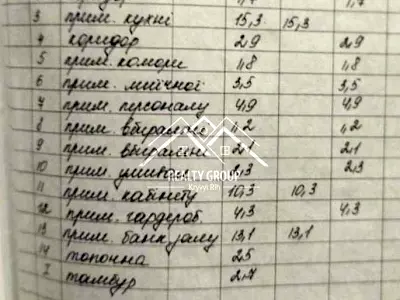 1,7 1,7
3 прим. кухні 15,3 15,3
4 коридор 2,9 2,9
5 прим. комори 1,8 1,8
6 прим. мийної 3,5 3,5
7 прим. персоналу 4,9 4,9
8 прим. вбиральні 1,2 1,2
9 прим. вбиральні 2,1 2,1
10 прим. умивал. 2,3 2,3
11 прим. кабінету 10,3 10,3
12 прим. гардероб. 4,3 4,3
13 прим. банк. залу 13,1 13,1
14 топочна 2,5
I тамбур 2,7
REALTY GROUP
Kryvyi Rih